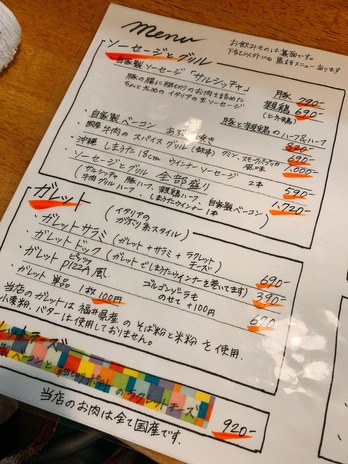 menu
お飲みものは裏面です。
ソーセージとグリル
自家製 ソーセージ 「サルシッチャ」
豚の腸に粗びきのお肉を詰めた
ちょと太めの イタリアの生ソーセージ
豚 790-
親鶏 690-
(ひね鶏)
豚と親鶏のハーフ&ハーフ
820-
・自家製ベーコン あぶり焼き 690-
・国産 牛肉のスパイスグリル 1,000-
・沖縄 しまうた 18cm ウインナーソーセージ 2本 590-
・ソーセージとグリル 全部盛り 1,720-
牛肉グリルハーフ
しまうたウインナー1本
自家製ベーコン)
ガレット
(イタリアの
・ガレットサラミ (ガレット+サラミ+ラクレットチーズ 690-
・ガレットドック (ガレットでしまうたウインナーを巻いてます) 390-
・ガレット ピッツァ PIZZA風 690-
・ガレット 単品 1枚 100円
ゴルゴンゾーラも
のせて +100円
当店のガレットは福井県産のそば粉と米粉を使用.
小麦粉、バターは使用しておりません。
ラクレットチーズ
920-
当店のお肉は全て国産です.